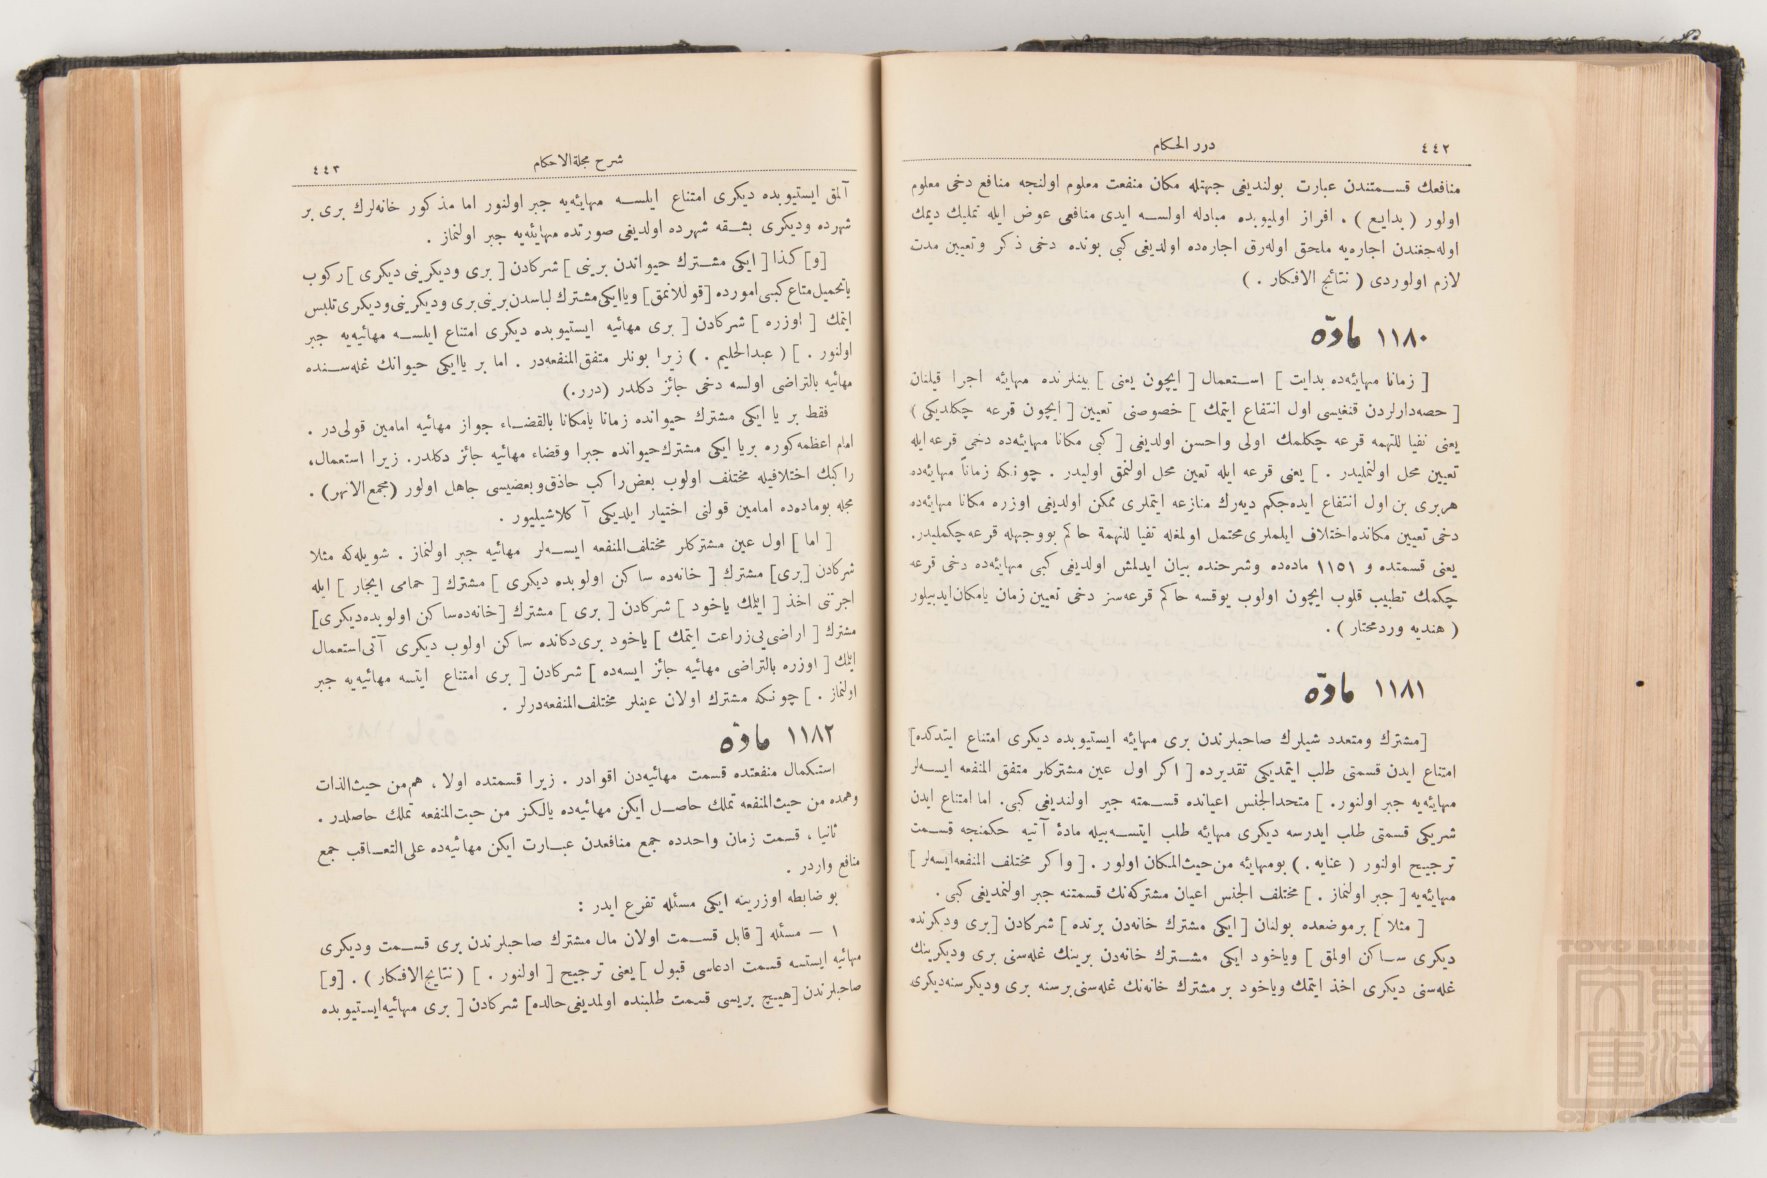 ٤٤٢
درر الحكام
منافعك قسمتندن عبارت بولنديغى جهتله مكان منفعت معلوم اولنجه منافع دخى معلوم
اولور ( بدايع ) . افراز اولميوبده مبادله اولسه ايدى منافعى عوض ايله تمليك ديمك
اوله‌جغندن اجاره‌يه ملحق اوله‌رق اجاره‌ده اولديغى كبى بونده دخى ذكر وتعيين مدت
لازم اولوردى ( نتائج الافكار . )
١١٨٠ مادّه
[ زمانا مهايئه‌ده بدايت ] استعمال [ ايچون يعنى ] بينلرنده مهايئه اجرا قيلنان
[ حصه‌دارلردن قنغيسى اول انتفاع ايتمك ] خصوصنى تعيين [ ايچون قرعه چكلديكى )
يعنى نفيا للتهمه قرعه چكلمك اولى واحسن اولديغى [ كبى مكانا مهايئه‌ده دخى قرعه ايله
تعيين محل اولنمليدر . ] يعنى قرعه ايله تعين محل اولنمق اوليدر . چونكه زماناً مهايئه‌ده
هربرى بن اول انتفاع ايده‌جكم ديه‌رك منازعه ايتملرى ممكن اولديغى اوزره مكانا مهايئه‌ده
دخى تعيين مكانده اختلاف ايلملرى محتمل اولمغله نفيا للتهمة حاكم بووجهله قرعه چكمليدر.
يعنى قسمتده و ١١٥١ ماده‌ده وشرحنده بيان ايدلمش اولديغى كبى مهايئه‌ده دخى قرعه
چكمك تطييب قلوب ايچون اولوب يوقسه حاكم قرعه‌سز دخى تعيين زمان يامكان ايدبيلور
( هنديه وردمختار ) .
١١٨١ مادّه
[مشترك ومتعدد شيلرك صاحبلرندن برى مهايئه ايستيوبده ديكرى امتناع ايتدكده]
امتناع ايدن قسمتى طلب ايتمديكى تقديرده [ اكر اول عين مشتركلر متفق المنفعه ايسه‌لر
مهايئه‌يه جبر اولنور. ] متحدالجنس اعيانده قسمته جبر اولنديغى كبى. اما امتناع ايدن
شريكى قسمتى طلب ايدرسه ديكرى مهايئه طلب ايتسه‌بيله مادۀ آتيه حكمنجه قسمت
ترجيح اولنور ( عنايه . ) بومهايئه من حيث‌المكان اولور . [ واكر مختلف المنفعه ايسه‌لر ]
مهايئه‌يه [ جبر اولنماز . ] مختلف الجنس اعيان مشتركه‌نك قسمتنه جبر اولنمديغى كبى .
[ مثلا ] برموضعده بولنان [ ايكى مشترك خانه‌دن برنده ] شركادن [ برى وديكرنده
ديكرى ساكن اولمق ] وياخود ايكى مشترك خانه‌دن برينك غله‌سنى برى وديكرينك
غله‌سنى ديكرى اخذ ايتمك وياخود بر مشترك خانه‌نك غله‌سنى برسنه برى وديكر سنه ديكرى
شرح مجلة الاحكام
٤٤٣
آلمق ايستيوبده ديكرى امتناع ايلسه مهايئه‌يه جبر اولنور اما مذكور خانه‌لرك برى بر
شهرده وديكرى بشقه شهرده اولديغى صورتده مهايئه‌يه جبر اولنماز .
[و] كذا [ ايكى مشترك حيواندن برينى ] شركادن [ برى وديكرينى ديكرى ] ركوب
ياتحميل متاع كبى امورده [قوللانمق] ويا ايكى مشترك لباسدن برينى برى وديكرينى وديكرى تلبس
ايتمك [ اوزره ] شركادن [ برى مهائيه ايستيوبده ديكرى امتناع ايلسه مهائيه‌يه جبر
اولنور . ] ( عبدالحليم . ) زيرا بونلر متفق‌المنفعه‌در . اما بر ياايكى حيوانك غله‌سنده
مهائيه بالتراضى اولسه دخى جائز دكلدر (درر.)
فقط بر يا ايكى مشترك حيوانده زمانا يامكانا بالقضاء جواز مهائيه امامين قولى‌در .
امام اعظمه كوره بريا ايكى مشترك حيوانده جبرا وقضاء مهائيه جائز دكلدر. زيرا استعمال،
راكبك اختلافيله مختلف اولوب بعض راكب حاذق وبعضيسى جاهل اولور (مجمع الانهر) .
مجله بوماده‌ده امامين قولنى اختيار ايلديكى آكلاشيليور .
[ اما ] اول عين مشتركلر مختلف‌المنفعه ايسه‌لر مهائيه جبر اولنماز . شويله‌كه مثلا
شركادن [برى] مشترك [ خانه‌ده ساكن اولوبده ديكرى ] مشترك [ حمامى ايجار ] ايله
اجرتنى اخذ [ ايتمك ياخود ] شركادن [ برى ] مشترك [خانه‌ده ساكن اولوبده ديكرى]
مشترك [ اراضى‌يى زراعت ايتمك ] ياخود برى دكانده ساكن اولوب ديكرى آتى استعمال
ايتمك [ اوزره بالتراضى مهائيه جائز ايسه‌ده ] شركادن [ برى امتناع ايتسه مهائيه‌يه جبر
اولنماز . ] چونكه مشترك اولان عينلر مختلف‌المنفعه‌درلر .
١١٨٢ مادّه
استكمال منفعتده قسمت مهائيه‌دن اقوادر . زيرا قسمتده اولا ، هم من حيث‌الذات
وهمده من حيث‌المنفعه تملك حاصل ايكن مهائيه‌ده يالكز من حيث‌المنفعه تملك حاصلدر .
ثانيا ، قسمت زمان واحدده جمع منافعدن عبارت ايكن مهائيه‌ده على‌التعاقب جمع
منافع واردر .
بو ضابطه اوزرينه ايكى مسئله تفرع ايدر :
١ – مسئله [ قابل قسمت اولان مال مشترك صاحبلرندن برى قسمت وديكرى
مهائيه ايستسه قسمت ادعاسى قبول ] يعنى ترجيح [ اولنور . ] ( نتايج‌الافكار ) . [و]
صاحبلرندن [هيچ بريسى قسمت طلبنده اولمديغى حالده] شركادن [ برى مهائيه ايستيوبده